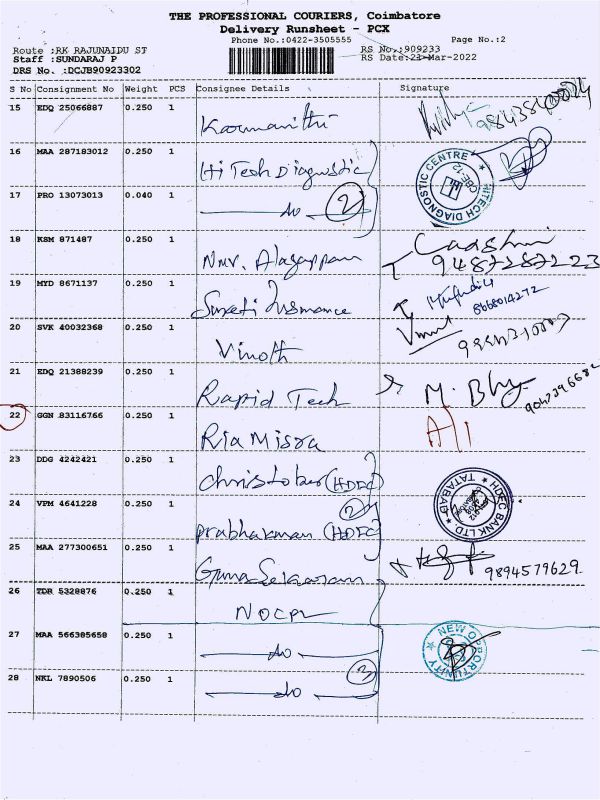 THE PROFESSIONAL COURIERS, Coimbatore
Delivery Runsheet - PCX
Phone No.:0422-3505555 Page No.:2
Route :RK RAJUNAIDU ST RS No.:909233
Staff :SUNDARAJ P RS Date:23-Mar-2022
DRS No. :DCJB90923302
S No Consignment No Weight PCS Consignee Details Signature
15 EDQ 25066887 0.250 1
16 MAA 287183012 0.250 1 Hi Tech Diagnostic
HITECH DIAGNOSTIC CENTRE CBE-12
17 PRO 13073013 0.040 1 do 2
18 KSM 871487 0.250 1 Alagappan
9487287223
19 MYD 8671137 0.250 1
8668014272
20 SVK 40032368 0.250 1 Vinoth
21 EDQ 21388239 0.250 1 Rapid Tech M. Bhy
22 GGN 83116766 0.250 1 Ria Misra
23 DDG 4242421 0.250 1 Christober (HDFC)
HDFC BANK LTD TATABAD
2
24 VPM 4641228 0.250 1 prabhakman (HDFC)
25 MAA 277300651 0.250 1 9894579629
26 TDR 5328876 0.250 1 NOCPL
27 MAA 566385658 0.250 1 do
NEW OPPORTUNITY
3
28 NKL 7890506 0.250 1 do